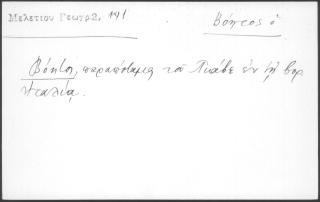 Μελετίου Γεωγρ2, 191
Βόητος ὁ
Βόητος, παραπόταμος τοῦ Πιάβε ἐν τῇ βορ.
Ἰταλίᾳ.